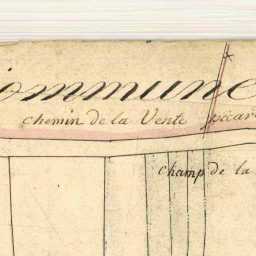 ommune
chemin de la Vente picar
champ de la